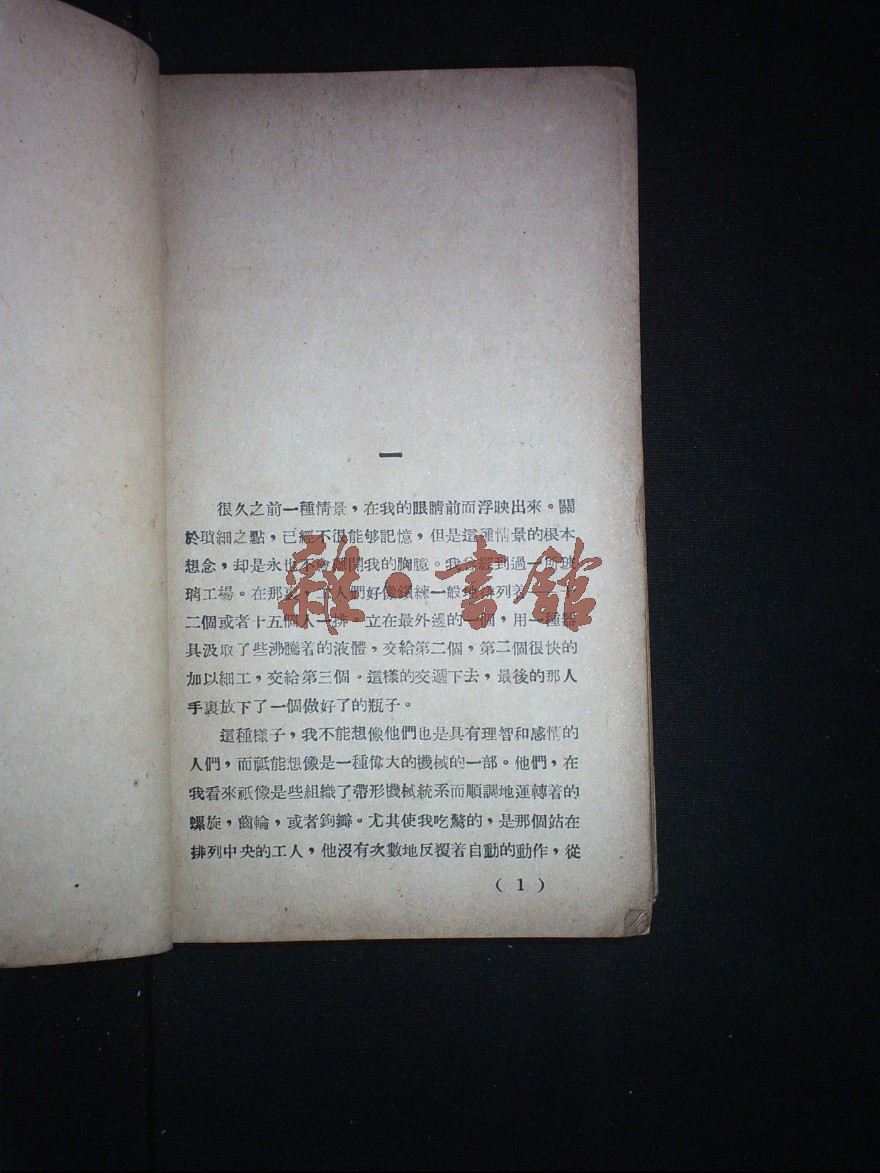 一
很久之前一種情景，在我的眼睛前而浮映出來。關
於瑣細之點，已經不很能够記憶，但是這種情景的根本
想念，却是永也不會離開我的胸臆。我曾經到過一所玻
璃工場。在那裏，工人們好像鎖練一般地排列着，十
二個或者十五個人一排，立在最外邊的一個，用一種器
具汲取了些沸騰着的液體，交給第二個，第二個很快的
加以細工，交給第三個。這樣的交遞下去，最後的那人
手裏放下了一個做好了的瓶子。
這種樣子，我不能想像他們也是具有理智和感情的
人們，而祇能想像是一種偉大的機械的一部。他們，在
我看來祇像是些組織了帶形機械統系而順調地運轉着的
螺旋，齒輪，或者鉤瓣。尤其使我吃驚的，是那個站在
排列中央的工人，他沒有次數地反覆着自動的動作，從
（1）
雜·書館